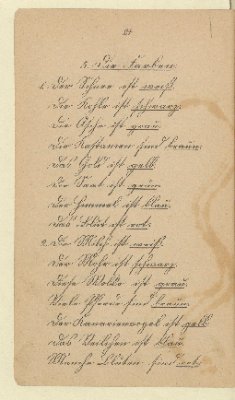 5. Die Farben.
1. Der Schnee ist weiß.
Die Kohle ist schwarz.
Die Asche ist grau.
Die Kastanien sind braun.
Das Gold ist gelb.
Die Saat ist grün.
Der Himmel ist blau.
Das Blut ist rot.
2. Die Milch ist weiß.
Der Mohr ist schwarz.
Diese Wolke ist grau.
Viele Pferde sind braun.
Der Kanarienvogel ist gelb.
Das Veilchen ist blau.
Manche Blüten sind rot.